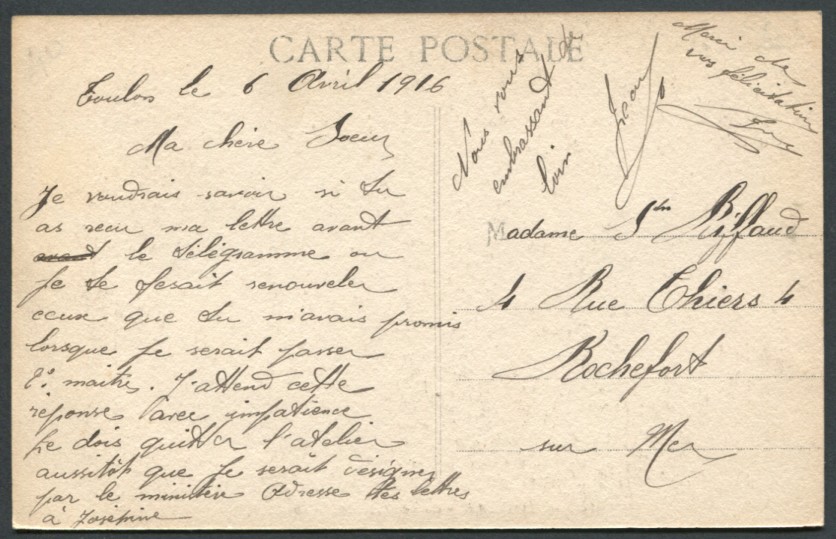 CARTE POSTALE
Toulon le 6 Avril 1916
Ma chère Soeur
Je voudrais savoir si tu
as recu ma lettre avant
avant le télégramme ou
je te fesait renouveler
ceux que tu m'avais promis
lorsque je serait passer
2e maitre. J'attend cette
réponse avec impatience
je dois quitter l'atelier
aussitôt que je serait désigner
par le ministère Adresse tes lettres
à Joséphine
Nous vous
embrassant de
loin
Jean
Merci de
vos félicitations
Madame Riffaud
4 Rue Thiers 4
Rochefort
sur Mer